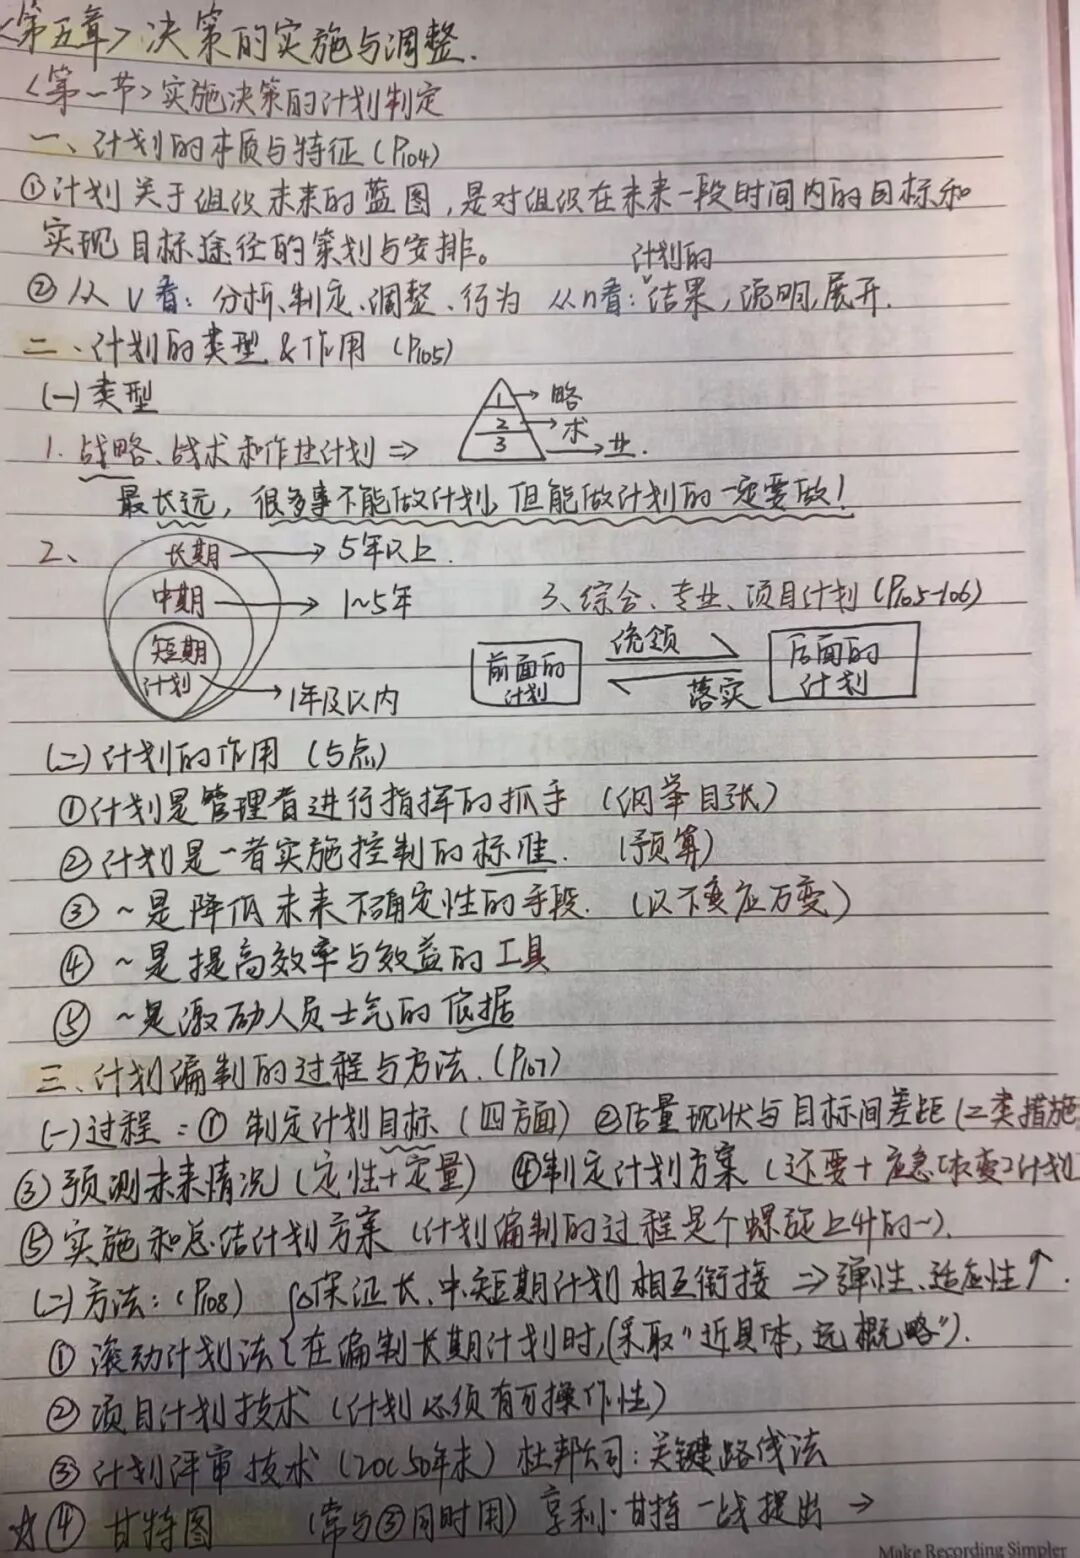 <第五章>决策的实施与调整.
<第一节>实施决策的计划制定
一、计划的本质与特征(P104)
①计划关于组织未来的蓝图,是对组织在未来一段时间内的目标和
实现目标途径的策划与安排。
计划的
②从V看：分析、制定、调整、行为 从n看：结果,说明,展开.
二、计划的类型&作用(P105)
(一)类型
1→略
2→术
1.战略、战术和作业计划⇒ 3→业.
最长远,很多事不能做计划,但能做计划的一定要做!
2、长期→5年以上.
中期→1~5年 3、综合、专业、项目计划(P105-106)
短期计划→1年及以内 前面的计划 统领 落实 后面的计划
(二)计划的作用(5点)
①计划是管理者进行指挥的抓手(纲举目张)
②计划是一者实施控制的标准.(预算)
③~是降低未来不确定性的手段.(以不变应万变)
④~是提高效率与效益的工具
⑤~是激励人员士气的依据
三、计划编制的过程与方法.(P107)
(一)过程：①制定计划目标(四方面)②估量现状与目标间差距(二类措施
③预测未来情况(定性+定量) ④制定计划方案(还要+应急[权变]计划
⑤实施和总结计划方案(计划编制的过程是个螺旋上升的~).
(二)方法：(P108) 保证长、中、短期计划相互衔接⇒弹性、适应性↑.
①滚动计划法{在编制长期计划时,(采取"近具体,远概略").
②项目计划技术(计划必须有可操作性)
③计划评审技术(20C50年末)杜邦公司：关键路线法
☆④甘特图 (常与③同时用)亨利·甘特一战提出→
Make Recording Simpler